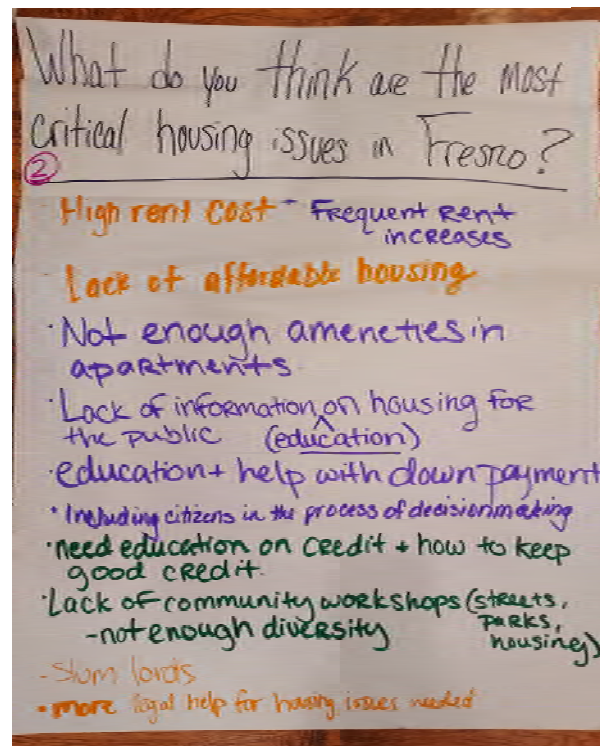 What do you think are the most
critical housing issues in Fresno?
2
High rent cost - Frequent Rent
increases
Lack of affordable housing
·Not enough ameneties in
apartments
·Lack of information on housing for
the public (education)
·education + help with down payment
·Including citizens in the process of decisionmaking
·need education on credit + how to keep
good credit.
·Lack of community workshops (streets,
-not enough diversity parks,
housing)
-Slum lords
-more legal help for housing issues needed